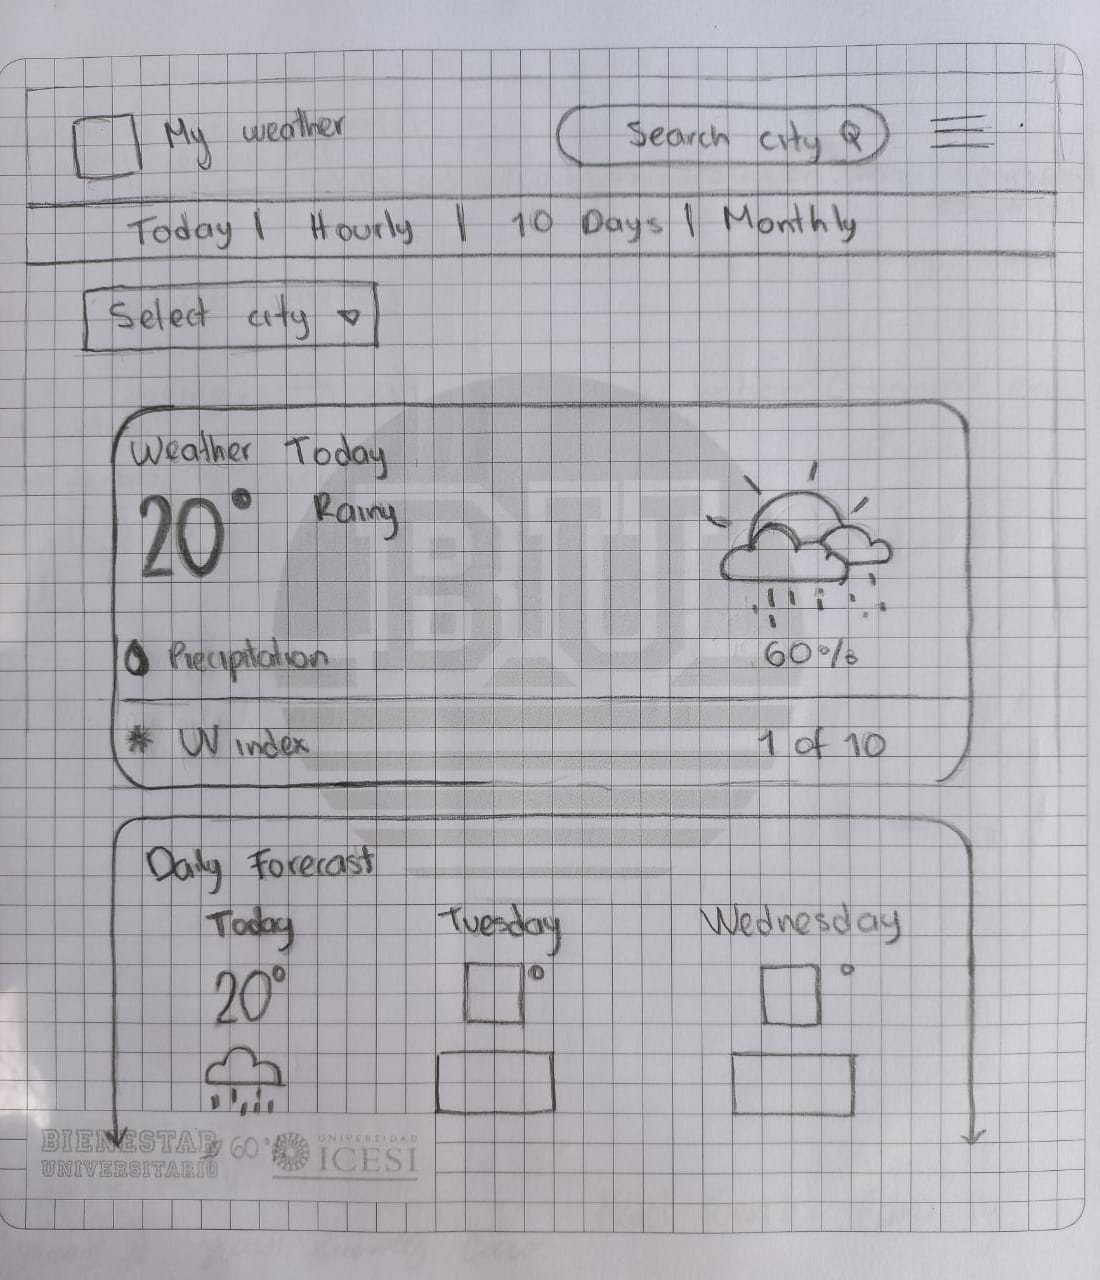 My weather
Search city
Today | Hourly | 10 Days | Monthly
Select city
Weather Today
20° Rainy
Precipitation 60%
UV index 1 of 10
Daily Forecast
Today Tuesday Wednesday
20° ° °
BIU
BIENESTAR
UNIVERSITARIO
60°
UNIVERSIDAD
ICESI